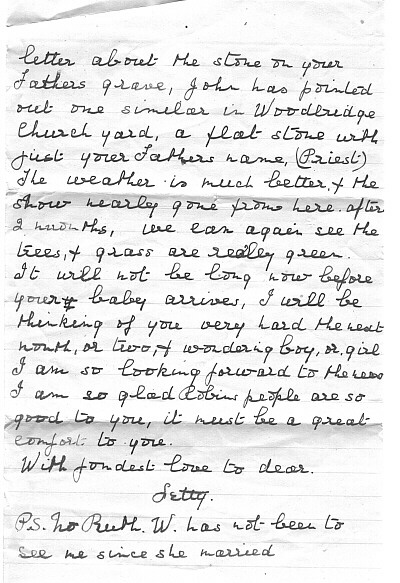 letter about the stone on your
Fathers grave, John has pointed
out one similar in Woodbridge
Church yard, a flat stone with
just your Fathers name, (Priest)
The weather is much better, & the
snow nearly gone from here. after
2 months, we can again see the
trees, & grass are really green.
It will not be long now before
your baby arrives, I will be
thinking of you very hard the next
month, or two, & wondering boy, or, girl
I am so looking forward to the news
I am so glad Robins people are so
good to you, it must be a great
comfort to you.
With fondest love to dear.
Jetty.
P.S. No Ruth. W. has not been to
see me since she married